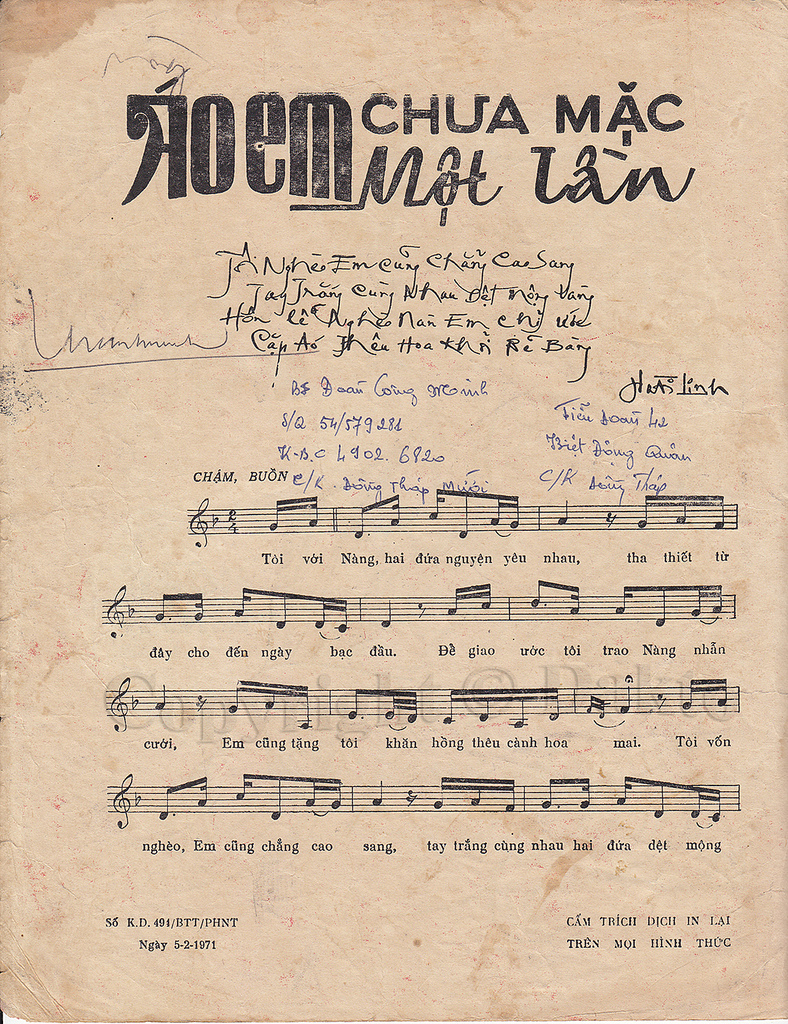 ÁO EM CHƯA MẶC
Một Lần
Tôi Nghèo Em Cũng Chẳng Cao Sang
Tay Trắng Cùng Nhau Dệt Mộng Vàng
Hôn Lễ Nghèo Nàn Em Chỉ Ước
Cặp Áo Thêu Hoa Khỏi Bẽ Bàng
Hoài Linh
BS Đoàn Công Minh
S/Q 54/579281
K.B.C 4902. 6820
C/K. Đồng Tháp Mười
Tiểu Đoàn 42
Biệt Động Quân
C/K Đồng Tháp
CHẬM, BUỒN
2/4
Tôi với Nàng, hai đứa nguyện yêu nhau, tha thiết từ
đây cho đến ngày bạc đầu. Để giao ước tôi trao Nàng nhẫn
cưới, Em cũng tặng tôi khăn hồng thêu cành hoa mai. Tôi vốn
nghèo, Em cũng chẳng cao sang, tay trắng cùng nhau hai đứa dệt mộng
Số K.D. 491/BTT/PHNT
Ngày 5-2-1971
CẤM TRÍCH DỊCH IN LẠI
TRÊN MỌI HÌNH THỨC